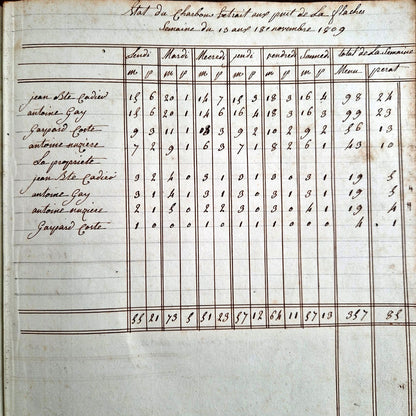 Etat du Charbons Extrait aux puit de La flaches
Semaine du 13 aux 18 novembre 1809
Lundi Mardi Mecredi jeudi vendredi Samedi total de La Semaine
m p m p m p m p m p m p Menu perat
jean Bte Cadier 15 6 20 1 14 7 15 3 18 3 16 4 98 24
antoine Gay 15 6 20 1 14 6 16 4 18 3 16 3 99 23
Gaspard Corte 9 3 11 1 3 9 2 10 2 9 2 56 13
antoine nuziere 7 2 9 1 6 3 7 1 8 2 6 1 43 10
La propriete
jean Bte Cadier 3 2 4 0 3 1 3 1 3 0 3 1 19 5
antoine Gay 3 1 4 0 3 1 3 0 3 1 3 1 19 5
antoine nuziere 2 1 5 0 2 2 3 0 3 0 4 1 19 4
Gaspard Corte 1 0 0 0 1 0 1 0 1 0 0 0 4 1
55 21 73 5 51 23 57 12 64 11 57 13 357 85